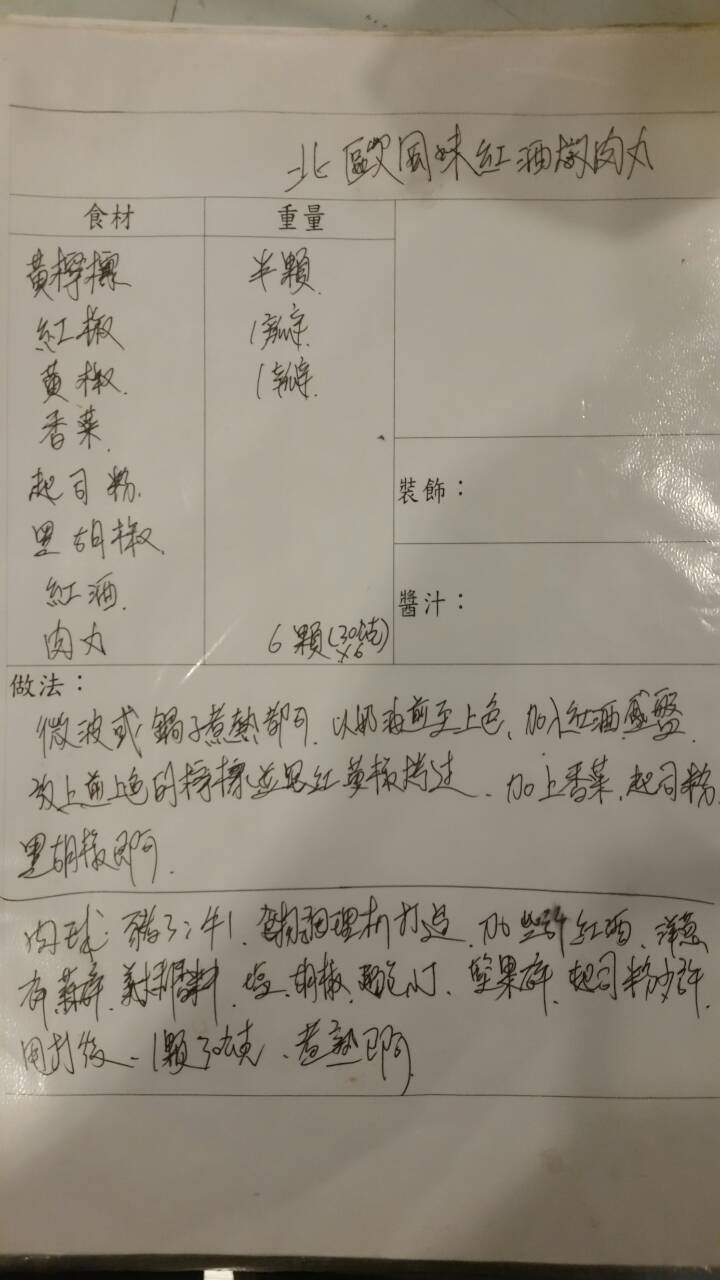 北歐風味紅酒燉肉丸
食材 重量
黃檸檬 半顆.
紅椒 1
黃椒. 1
香菜.
起司粉.
黑胡椒.
紅酒.
肉丸 6顆(30克x6)
裝飾：
醬汁：
做法：
微波或鍋子煮熟都可. 以奶油煎至上色, 加入紅酒盛盤.
放上煎上色的檸檬並 紅黃椒 過. 加上香菜, 起司粉,
黑胡椒即可.
肉球: 豬3:牛1, 調理機打過, 加些許紅酒, 洋蔥
碎, 義式香料, 鹽, 胡椒, 堅果碎, 起司粉少許,
甩打後、1顆30克、煮熟即可.